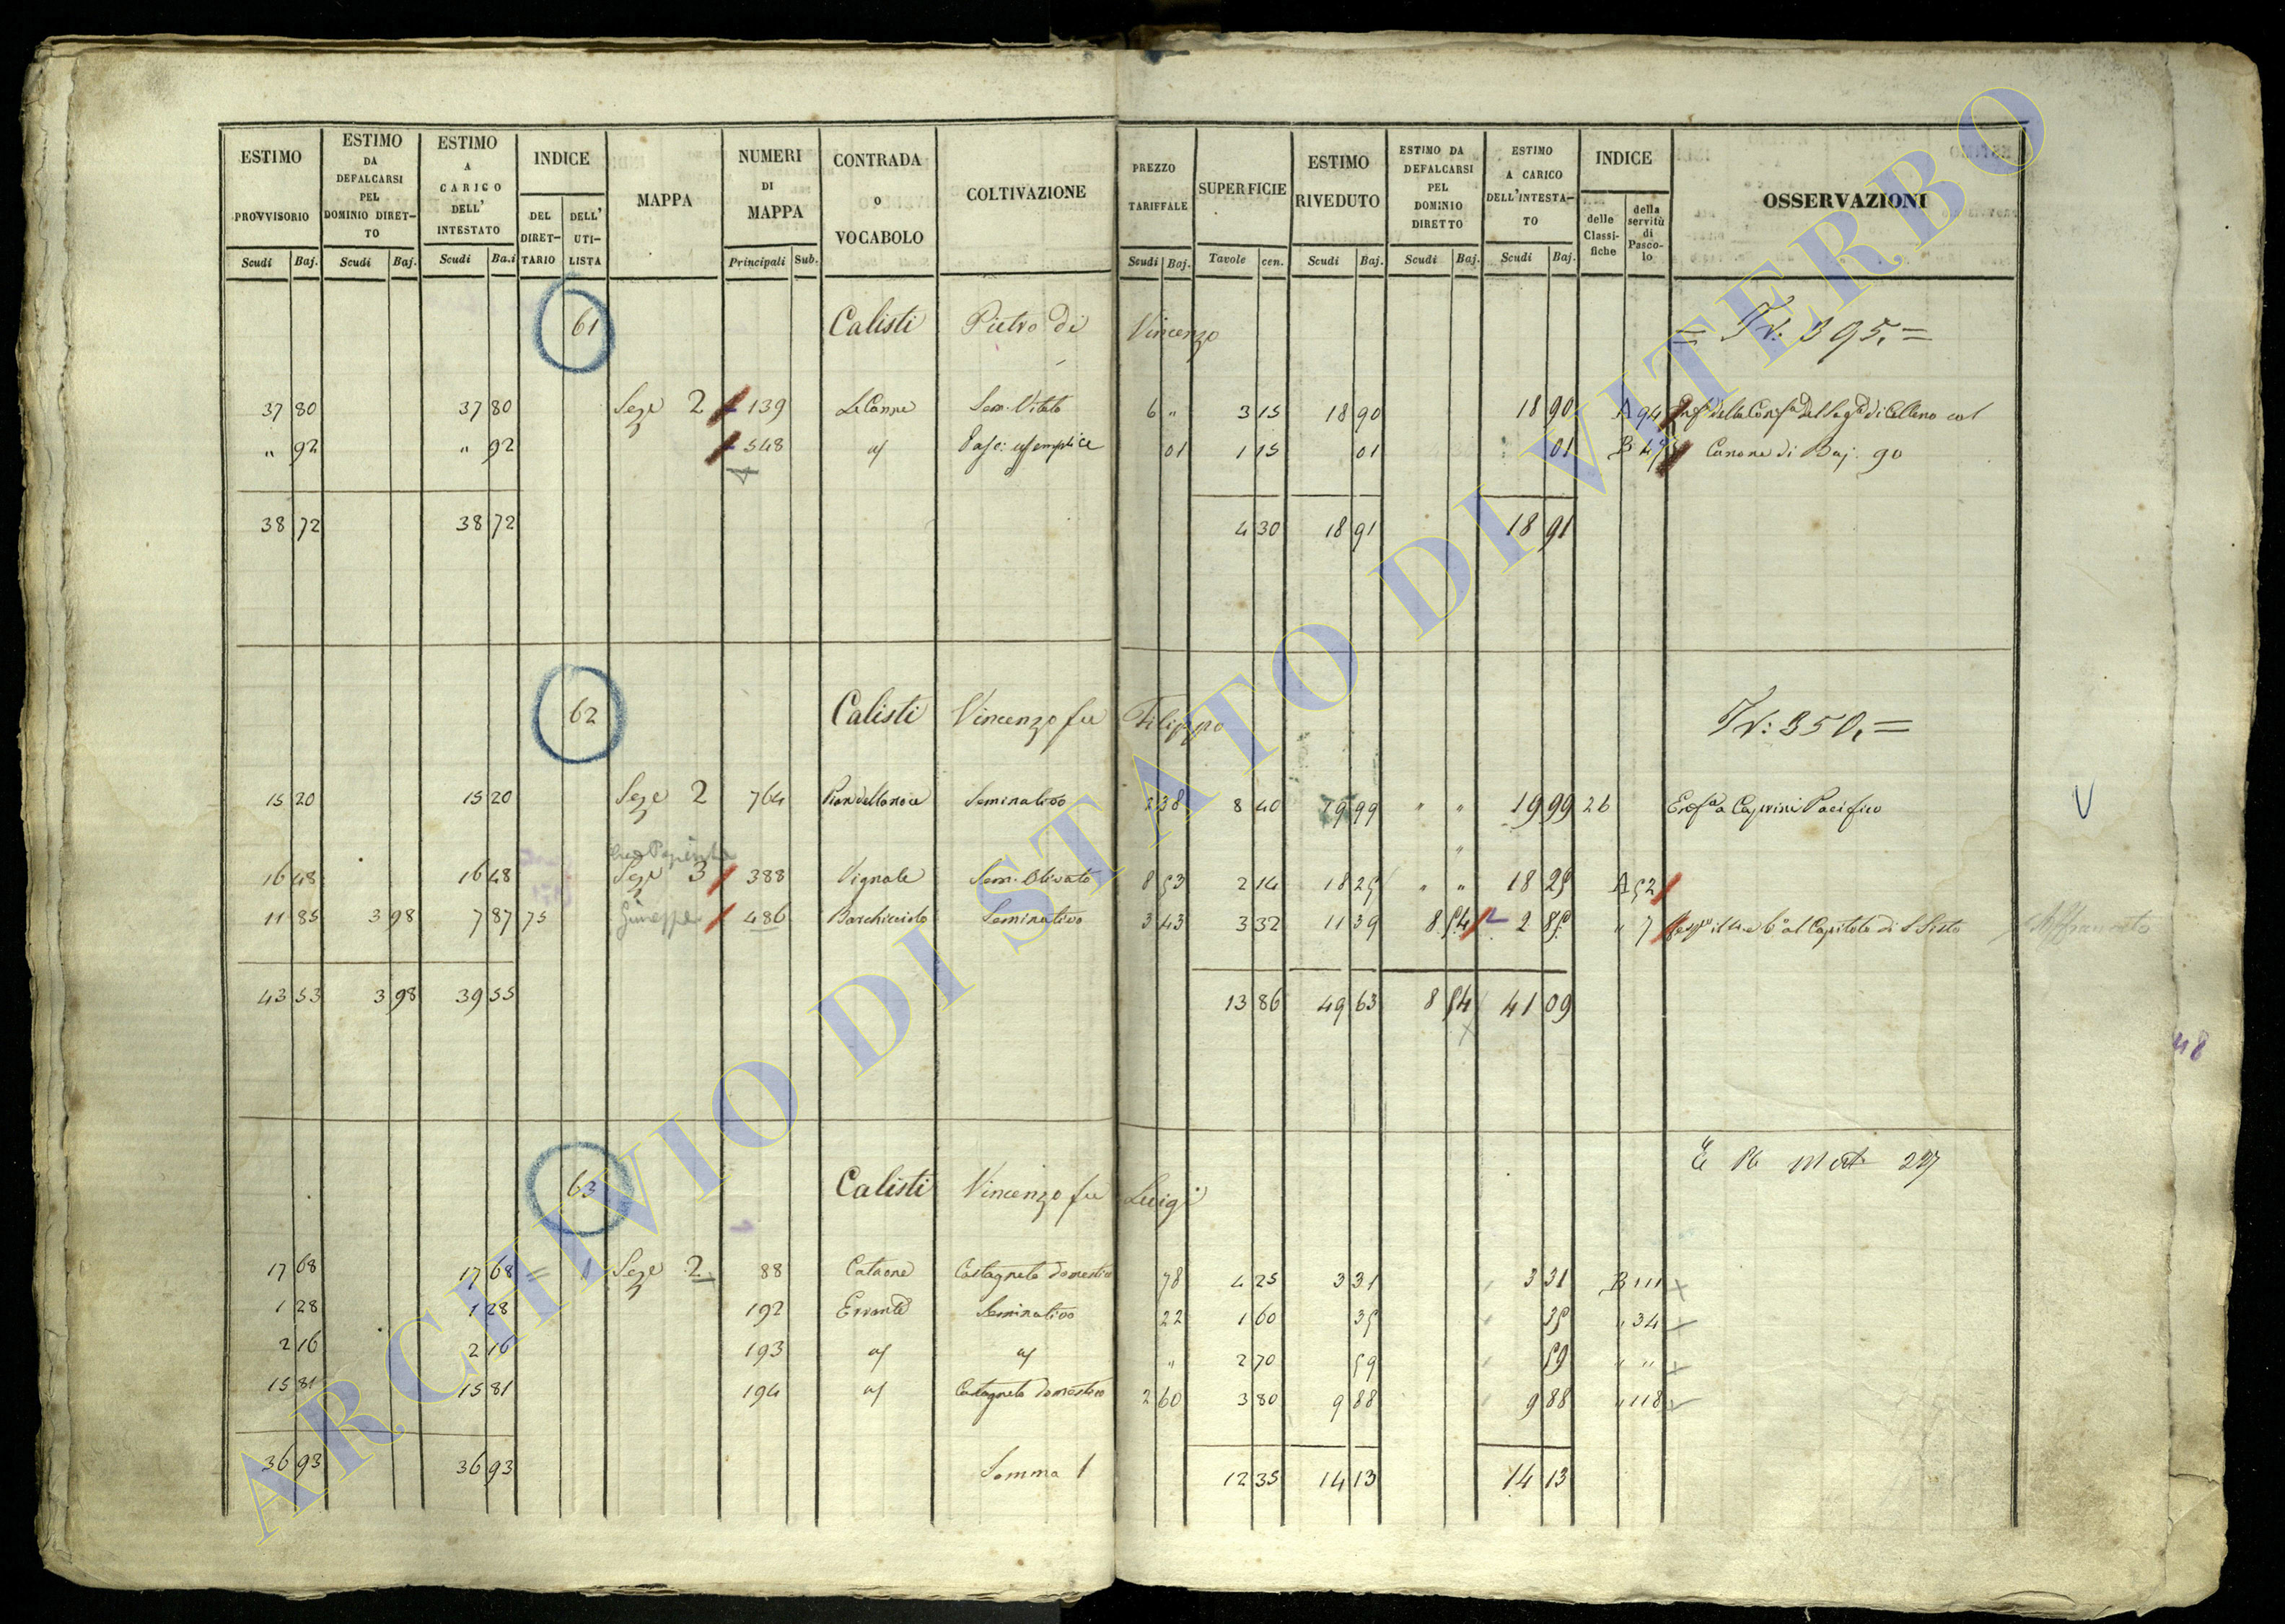 ESTIMO PROVVISORIO Scudi Baj.
ESTIMO DA DEFALCARSI PEL DOMINIO DIRETTO Scudi Baj.
ESTIMO A CARICO DELL' INTESTATO Scudi Ba.i
INDICE DEL DIRETTARIO DELL' UTILISTA
MAPPA
NUMERI DI MAPPA Principali Sub.
CONTRADA O VOCABOLO
COLTIVAZIONE
PREZZO TARIFFALE Scudi Baj.
SUPERFICIE Tavole cen.
ESTIMO RIVEDUTO Scudi Baj.
ESTIMO DA DEFALCARSI PEL DOMINIO DIRETTO Scudi Baj.
ESTIMO A CARICO DELL'INTESTATO Scudi Baj.
INDICE delle Classifiche della servitù di Pascolo
OSSERVAZIONI
61 Calisti Pietro di Vincenzo = 395. =
37 80 37 80 Seze 2 139 Le Canne Sem. Vitato 6 " 3 15 18 90 18 90 A 94
" 92 " 92 548 1 15 01 01 B Canone di Baj. 90
38 72 38 72 4 30 18 91 18 91
62 Calisti Vincenzo fu Filippo 350. =
15 20 15 20 Seze 2 764 Pian della noce Seminativo 2 38 8 40 19 99 " " 19 99 26 Caprini Pacifico V
16 48 16 48 Seze 3 388 Vignale Sem. Olivato 8 53 2 14 18 25 " " 18 25 A 52
11 85 3 98 7 87 75 Giuseppe 486 Seminativo 3 43 3 32 11 39 8 54 2 85 " 7 al Capitolo di S. Sisto Affrancato
43 53 3 98 39 55 13 86 49 63 8 54 41 09
118
63 Calisti Vincenzo fu Luigi 227
17 68 17 68 = 1 Seze 2 88 Catrone Castagneto domestico 78 4 25 3 31 3 31 B 111
1 28 1 28 192 Errante Seminativo 22 1 60 35 35 " 34
2 16 2 16 193 " 2 70 59 59 " "
15 81 15 81 194 Castagneto domestico 2 60 3 80 9 88 9 88 " 118
36 93 36 93 Somma 1 12 35 14 13 14 13
ARCHIVIO DI STATO DI VITERBO